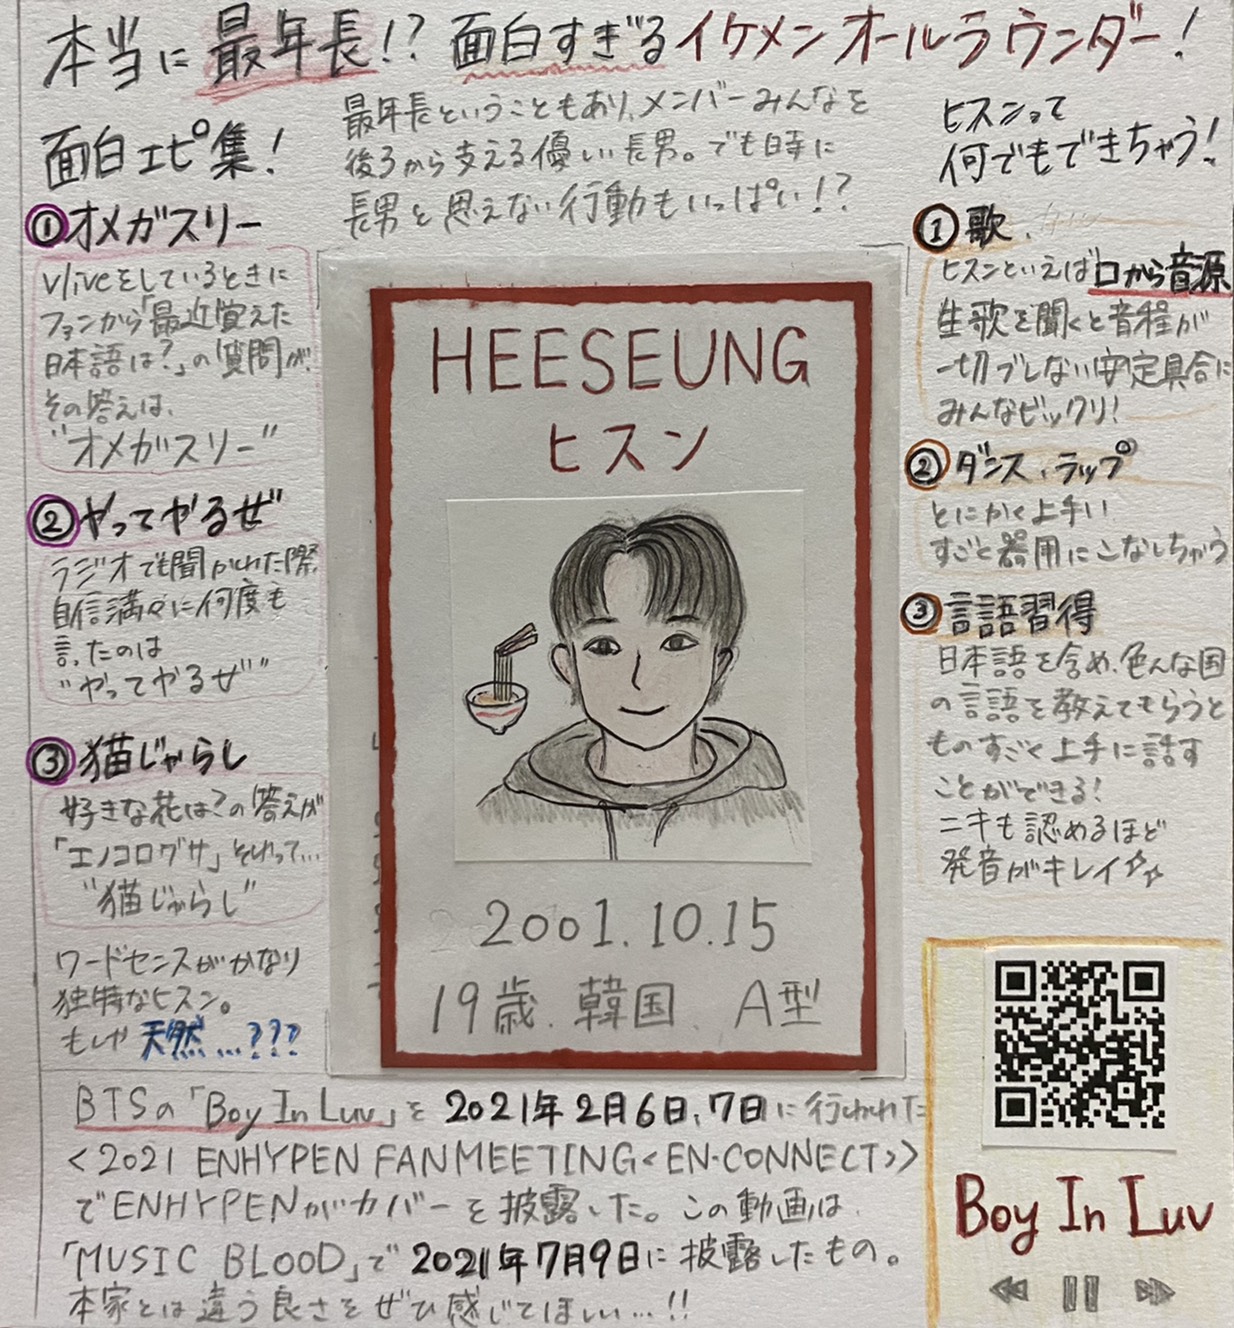 本当に最年長!? 面白すぎるイケメンオールラウンダー!
最年長ということもあり、メンバーみんなを
後ろから支える優しい長男。でも時に
長男と思えない行動もいっぱい!?
面白エピ集!
①オメガスリー
Vliveをしているときに
ファンから「最近覚えた
日本語は?」の質問が!
その答えは、
"オメガスリー"
②やってやるぜ
ラジオでも聞かれた際
自信満々に何度も
言ったのは
"やってやるぜ"
③猫じゃらし
好きな花は?の答えが
「エノコログサ」それって...
"猫じゃらし"
ワードセンスがかなり
独特なヒスン。
もしや天然...???
HEESEUNG
ヒスン
2001.10.15
19歳.韓国.A型
ヒスンって
何でもできちゃう!
①歌
ヒスンといえば口から音源
生歌を聞くと音程が
一切ブレない安定具合に
みんなビックリ!
②ダンス、ラップ
とにかく上手い
すごと器用にこなしちゃう
③言語習得
日本語を含め、色んな国
の言語を教えてもらうと
ものすごく上手に話す
ことができる!
ニキも認めるほど
発音がキレイ☆☆
BTSの「Boy In Luv」を2021年2月6日、7日に行われた
<2021 ENHYPEN FANMEETING<EN-CONNECT>>
でENHYPENがカバーを披露した。この動画は、
「MUSIC BLOOD」で2021年7月9日に披露したもの。
本家とは違う良さをぜひ感じてほしい...!!
Boy In Luv